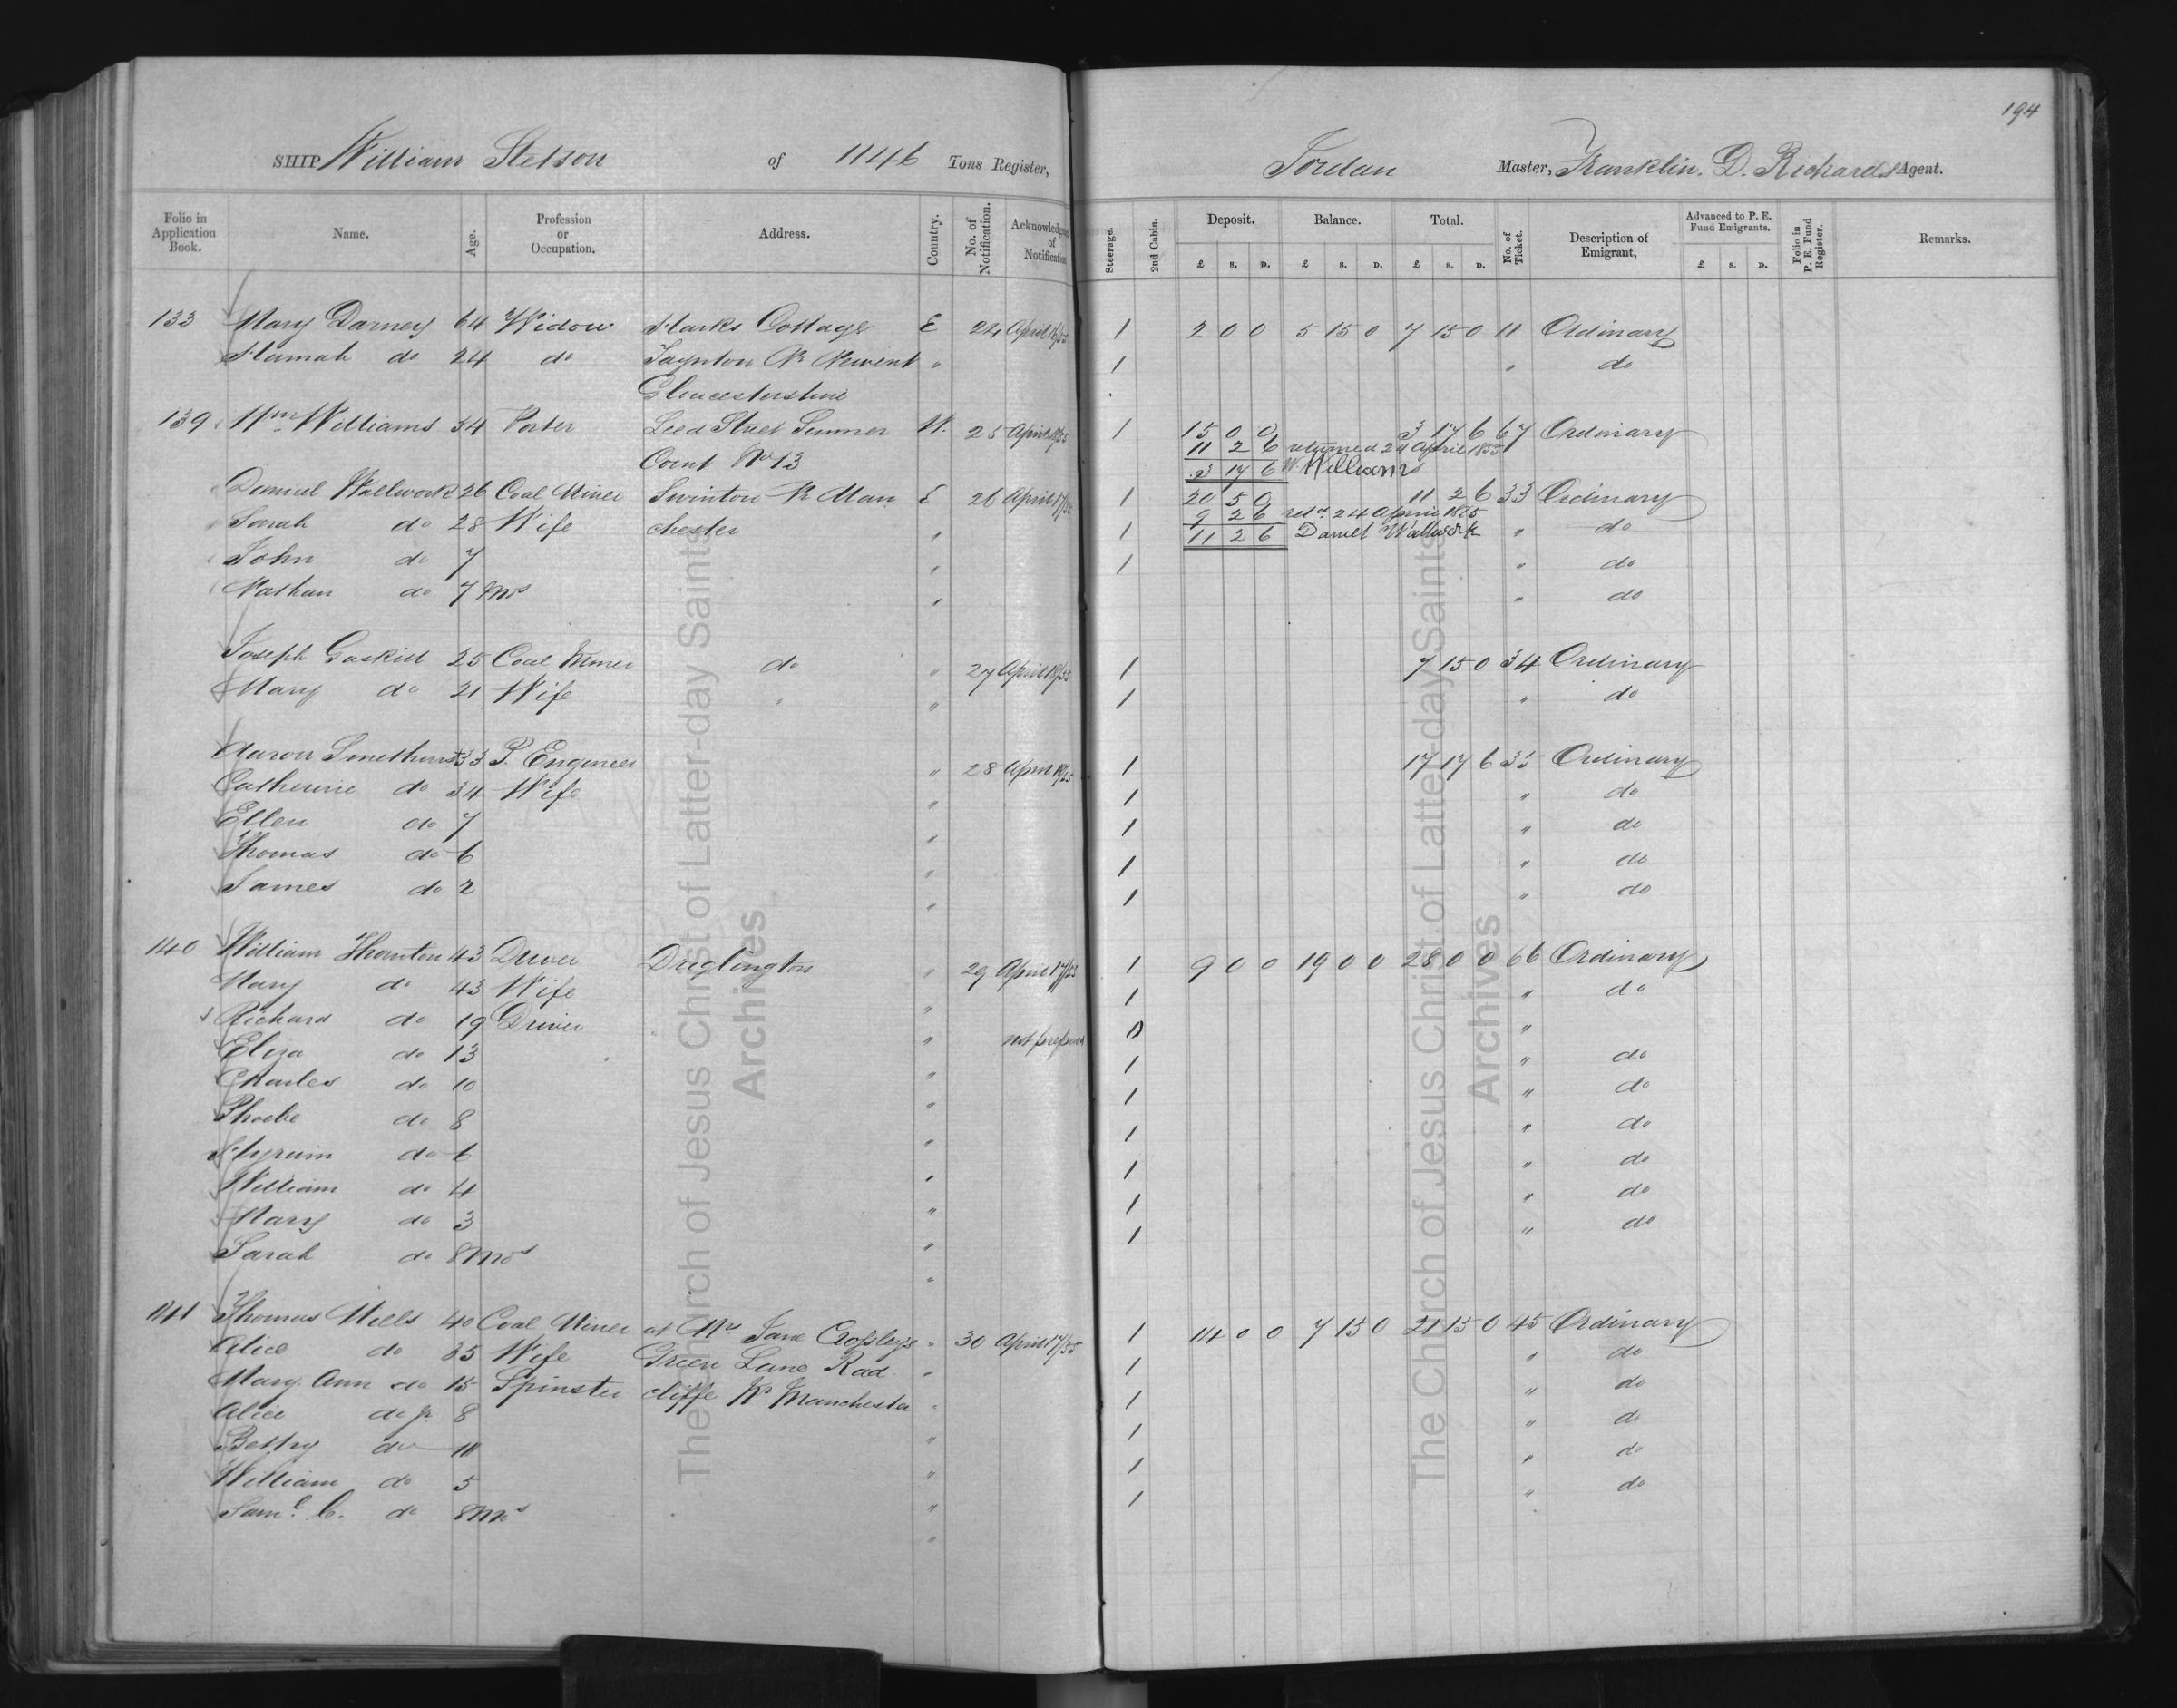 194
SHIP William Stetson of 1146 Tons Register, Jordan Master, Franklin. D. Richards Agent.
Folio in Application Book. Name. Age. Profession or Occupation. Address. Country. No. of Notification. Acknowledgment of Notification Steerage. 2nd Cabin. Deposit. Balance. Total. No. of Ticket. Description of Emigrant, Advanced to P. E. Fund Emigrants. Folio in P. E. Fund Register. Remarks.
£ S. D. £ S. D. £ S. D. £ S. D.
133 Mary Darney 64 Widow Harks Cottage E 24 April 18/55 1 2 0 0 5 15 0 7 15 0 11 Ordinary
Hannah do 24 do Taynton Nr Newent " 1 " do
Gloucestershire
139 Wm Williams 34 Porter Leed Street Sumner W. 25 April 18/55 1 15 0 0 3 17 6 67 Ordinary
11 2 6 returned 24 April 1855
Court No 13 3 17 6 W. Williams
Daniel Wallwork 26 Coal Miner Swinton Nr Man E 26 April 17/55 1 20 5 0 11 2 6 33 Ordinary
9 2 6 retd. 24 April 1855
Sarah do 28 Wife chester " 1 11 2 6 Daniel Wallwork " do
John do 7 " 1 " do
Nathan do 7 Mos " " do
Joseph Gaskill 25 Coal Miner do " 27 April 18/55 1 7 15 0 34 Ordinary
Mary do 21 Wife " " 1 " do
Aaron Smethurst 33 P. Engineer " 28 April 18/55 1 17 17 6 35 Ordinary
Catherine do 34 Wife " 1 " do
Ellen do 7 " 1 " do
Thomas do 6 " 1 " do
James do 2 " 1 " do
140 William Thornton 43 Driver Driglington " 29 April 17/55 1 9 0 0 19 0 0 28 0 0 66 Ordinary
Mary do 43 Wife " 1 " do
Richard do 19 Driver " not prepared 0 "
Eliza do 13 " 1 " do
Charles do 10 " 1 " do
Phoebe do 8 " 1 " do
Hyrum do 6 " 1 " do
William do 4 " 1 " do
Mary do 3 " 1 " do
Sarah do 8 Mos "
141 Thomas Mills 40 Coal Miner at Mrs Jane Crossleys " 30 April 17/55 1 14 0 0 7 15 0 21 15 0 45 Ordinary
Alice do 35 Wife Green Lane Rad " 1 " do
Mary Ann do 15 Spinster cliffe Nr Manchester " 1 " do
Alice do Jr 8 " 1 " do
Betsy do 11 " 1 " do
William do 5 " 1 " do
Saml. C. do 8 Mos "
The Church of Jesus Christ of Latter-day Saints
Archives
The Church of Jesus Christ of Latter-day Saints
Archives